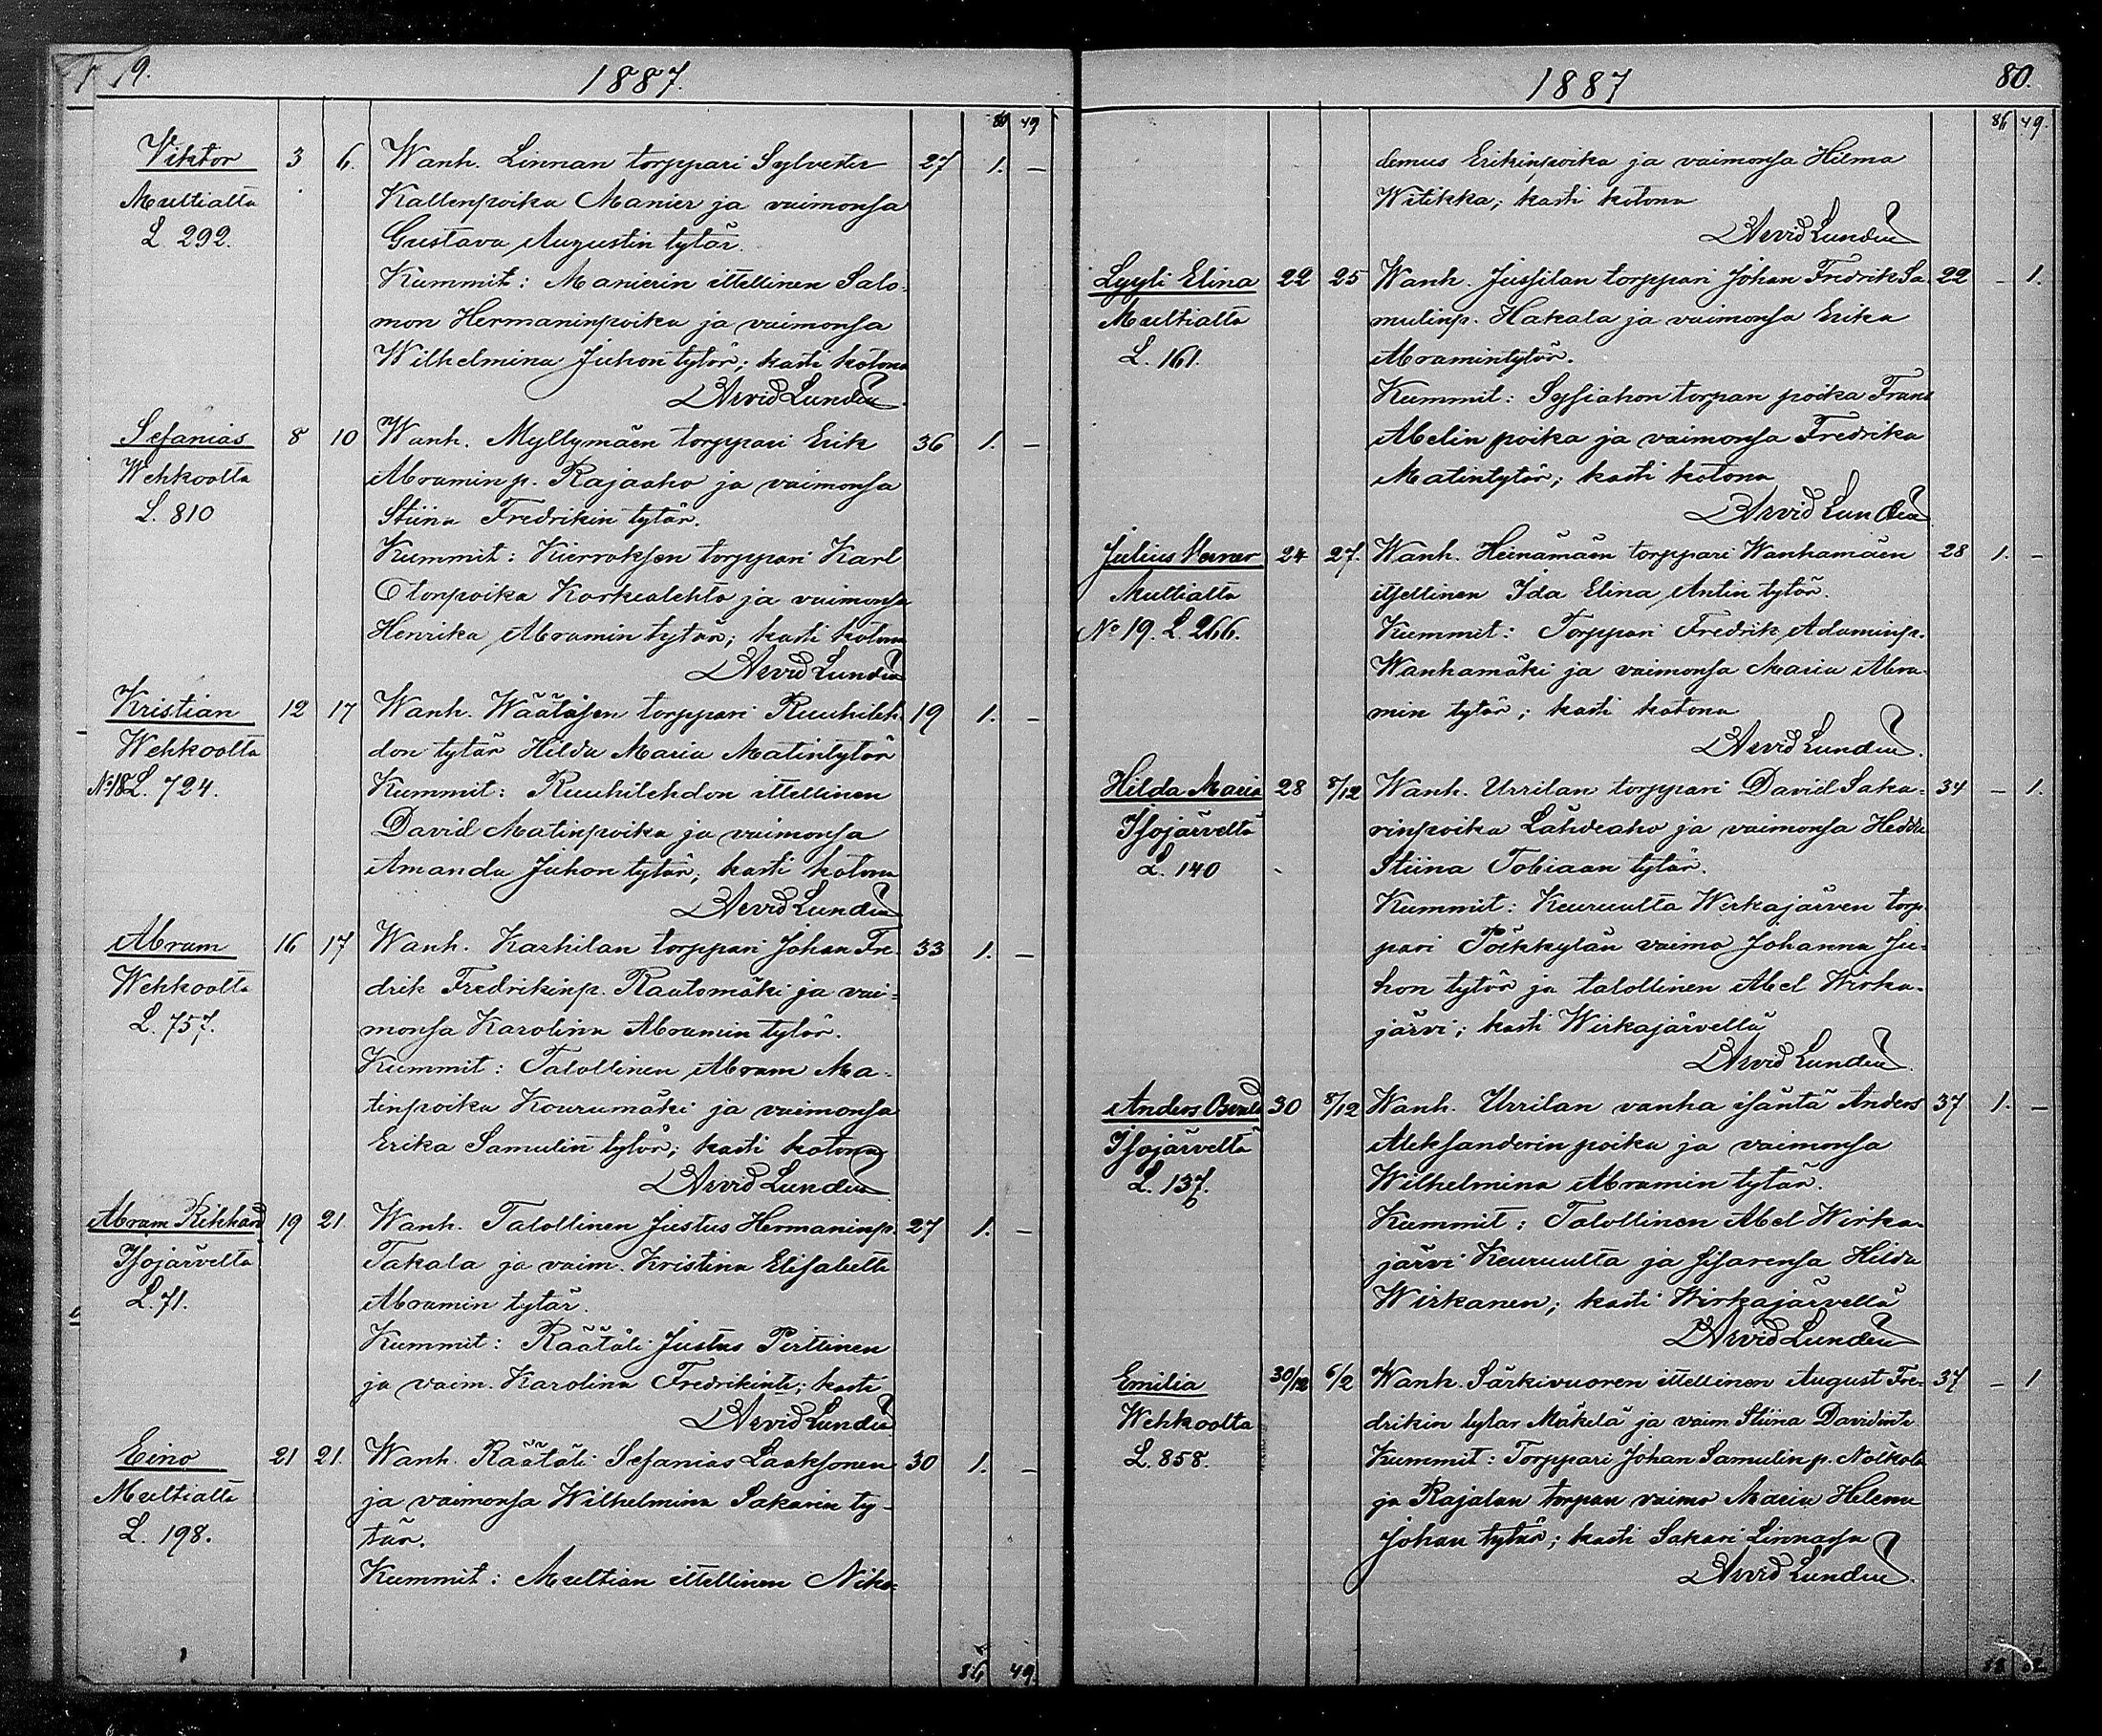 79. 1887.
80 49
Viktor 3 6. Wanh. Linnan torppari Sylvester 27 1. –
Multialta Kallenpoika Manier ja vaimonsa
L 292. Gustava Augustin tytär.
Kummit: Manierin ittellinen Salo-
mon Hermaninpoika ja vaimonsa
Wilhelmina Juhon tytär; kasti kotona
Arvid Lundén.
Sefanias 8 10 Wanh. Myllymäen torppari Erik 36 1. –
Wehkoolta Abramin p. Rajaaho ja vaimonsa
L. 810 Stiina Fredrikin tytär.
Kummit: Kierroksen torppari Karl
Otonpoika Korkealehto ja vaimonsa
Henrika Abramin tytär; kasti kotona
Arvid Lundén
Kristian 12 17 Wanh. Wäätäisen torppari Ruuhileh- 19 1. –
Wehkoolta don tytär Hilda Maria Matintytär
No 18 L. 724. Kummit: Ruuhilehdon ittellinen
David Matinpoika ja vaimonsa
Amanda Juhon tytär; kasti kotona
Arvid Lundén
Abram 16 17 Wanh. Karhilan torppari Johan Fre- 33 1. –
Wehkoolta drik Fredrikinp. Rautomäki ja vai-
L. 757. monsa Karolina Abramin tytär.
Kummit: Talollinen Abram Ma-
tinpoika Kourumäki ja vaimonsa
Erika Samulin tytär; kasti kotona
Arvid Lundén
Abram Rikhard 19 21 Wanh. Talollinen Justus Hermaninp. 27 1. –
Isojärveltä Takala ja vaim. Kristina Elisabetta
L. 71. Abramin tytär.
Kummit: Räätäli Justus Pirttinen
ja vaim. Karolina Fredrikint.; kasti
Arvid Lundén
Eino 21 21. Wanh. Räätäli Sefanias Laaksonen 30 1. –
Multialta ja vaimonsa Wilhelmina Sakarin ty-
L. 198. tär.
Kummit: Multian ittellinen Niko-
86 49
1887 80.
86 49.
demus Erikinpoika ja vaimonsa Hilma
Witikka; kasti kotona
Arvid Lundén
Lyyli Elina 22 25 Wanh. Jussilan torppari Johan Fredrik Sa- 22 – 1.
Multialta mulinp. Hakala ja vaimonsa Erika
L. 161. Abramintytär.
Kummit: Sysiahon torpan poika Frans
Abelin poika ja vaimonsa Fredrika
Matintytär; kasti kotona
Arvid Lundén
Julius Verner 24 27. Wanh. Heinämäen torppari Wanhamäen 28 1. –
Multialta itsellinen Ida Elina Antin tytär.
No 19. L. 266. Kummit: Torppari Fredrik Adaminp.
Wanhamäki ja vaimonsa Maria Abra-
min tytär; kasti kotona
Arvid Lundén.
Hilda Maria 28 8/12 Wanh. Urrilan torppari David Saka- 34 – 1.
Isojärveltä rinpoika Lähdeaho ja vaimonsa Hedda
L. 140 Stiina Tobiaan tytär.
Kummit: Keuruulta Wirkajärven torp-
pari Pöikkylän vaimo Johanna Ju-
hon tytär ja talollinen Abel Wirka-
järvi; kasti Wirkajärvellä
Arvid Lundén.
Anders Osvald 30 8/12 Wanh. Urrilan vanha isäntä Anders 37 1. –
Isojärveltä Aleksanderin poika ja vaimonsa
L. 137. Wilhelmina Abramin tytär.
Kummit: Talollinen Abel Wirka-
järvi Keuruulta ja sisarensa Hilda
Wirkanen; kasti Wirkajärvellä
Arvid Lundén
Emilia 30/12 6/2 Wanh. Särkivuoren ittellinen August Fre- 37 – 1
Wehkoolta drikin tytar Mäkelä ja vaim Stiina Davidint.
L. 858. Kummit: Torppari Johan Samulin p. Nolkola
ja Rajalan torpan vaimo Maria Helena
Johan tytär; kasti Sakari Linnassa
Arvid Lundén.
88 52